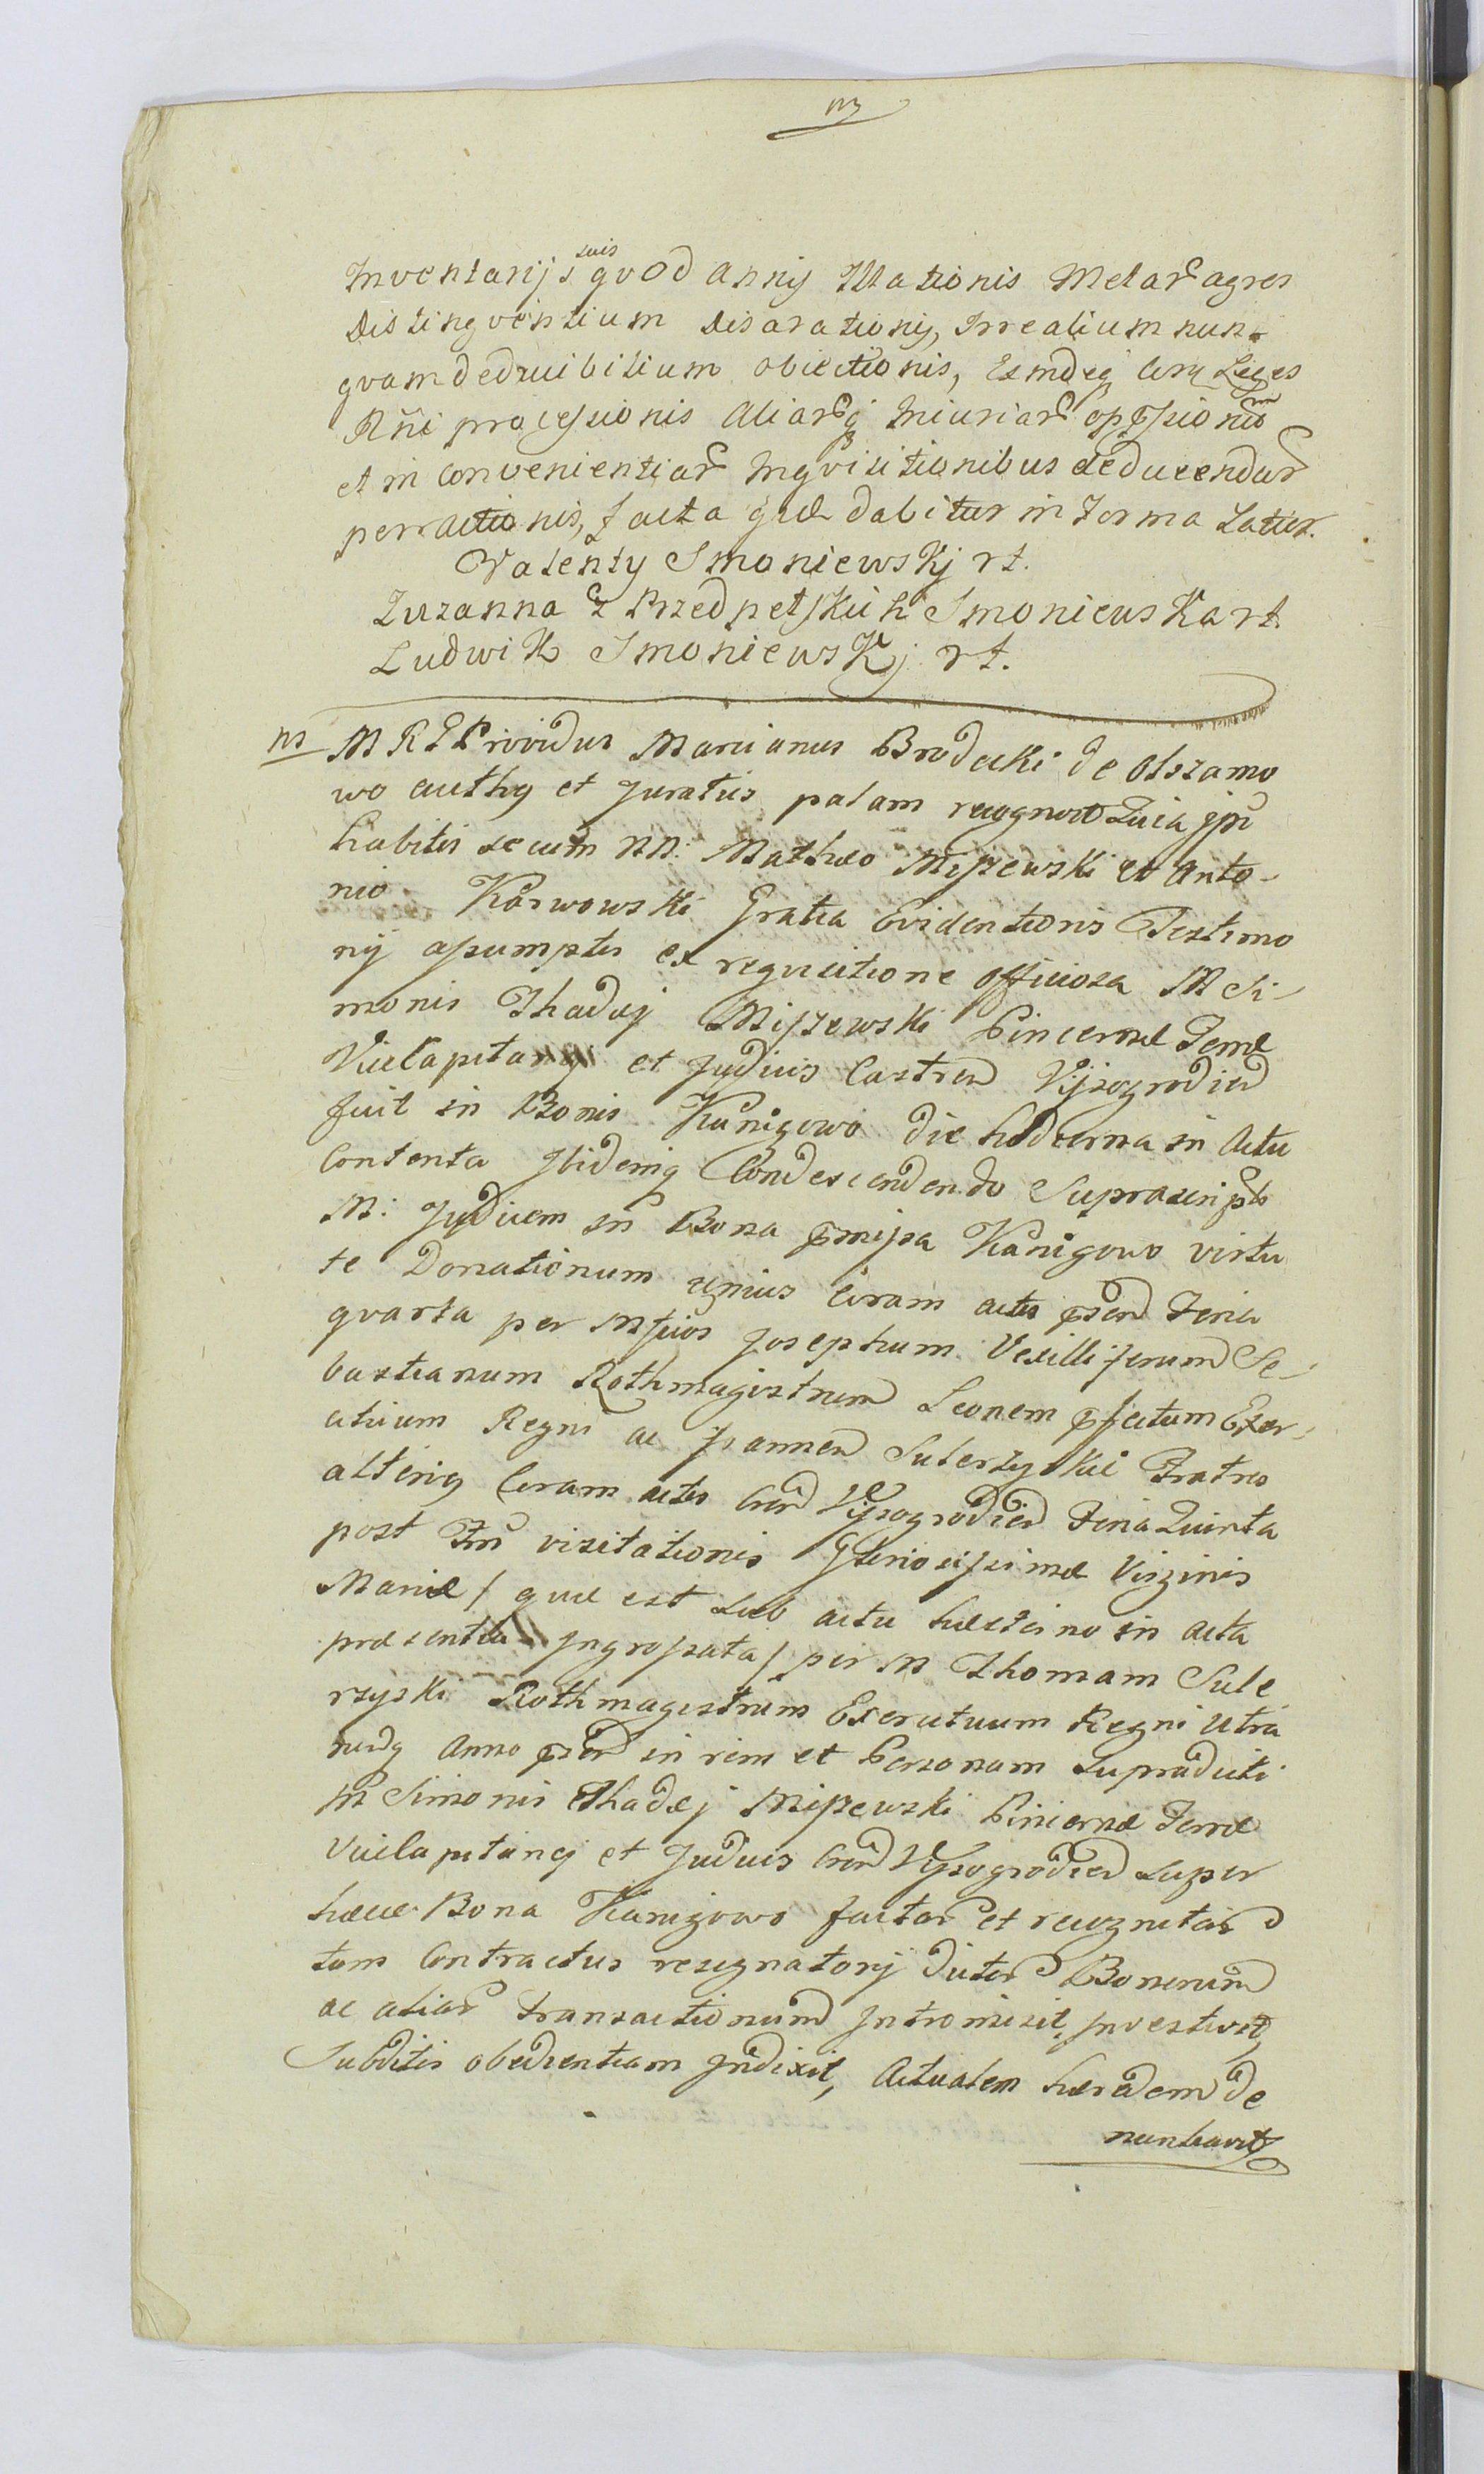 Inventarijs suis qvod annij Illationis Metar agros
distingventium disarationis, Irrealium nun-
qvam deducibilium obiectionis, Leges
Rñi processionis aliarq iniuriar oppssionũ
et in convenientiar Inqvisitionibus deducendar
perractionis, facta quæ dabitur in forma Latior.
Valenty Smoniewskj rt.
Zuzanna z Przedpełskich Smoniewska rt.
Ludwik Smoniewskj rt.
M R L Providus Marcianus Brodecki de Olszamo
wo authq et Juratus palam recognovit Quia ipse
habitis secum NN: Mathæo Miszewski et Anto-
nio Karwowski Gratia Evidentioris Testimo
nij assumptis ex requisitione officiosa M Si-
monis Thadæj Miszewski Pincernæ Terræ
ViceCapitanej et Judicis Castren Vyszogrodien
fuit in Bonis Kanigowo die hodierna in Actu
Contenta Ibidemq Condescendendo Suprascriptũ
M: Judicem in Bona præmissa Kanigowo virtu
te Donationum unius Coram actis præsen Feria
qvarta per Mfficos Josephum Vexilliferum Se-
bastianum Rothmagistrum Leonem præfectum Exer-
cituum Regni ac Joannem Sulerzyskie Fratres
alteriq Coram actis Cren Vyszogrodien Feria Quinta
post Ftũ visitationis Gloriosissimæ Virginis
Mariæ / quæ est sub actu hæsterno in acta
præsentia Ingrossata / per M Thomam Sule
rzyski Rothmagistrum Exercituum Regni Utra
rumq Anno præsen in rem et Personam supradicti
M Simonis Thadæj Miszewski Pincernæ Terræ
ViceCapitanej et Judicis Cren Vyszogrodien super
hæcce Bona Kanigowo factar et recognitar
tam Contractus resignatorij dictor Bonorum
ac aliar transactionum Intromisit, Investivit,
Subditis obedientiam Indixit, Actualem hæredem de
nunciavit